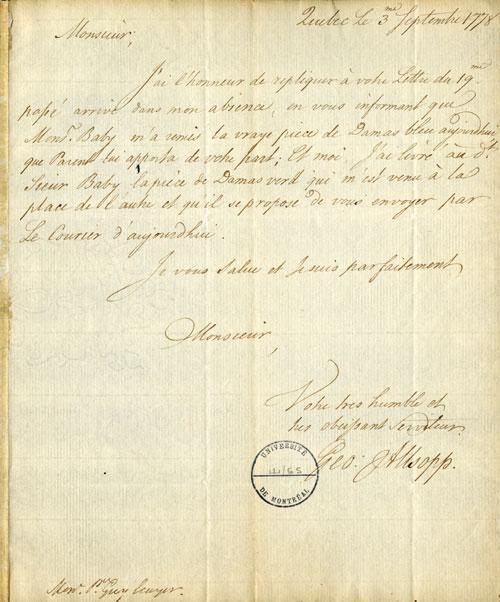 Quebec Le 3.me Septembre 1778
Monsieur,
J'ai l'honneur de repliquer à votre Lettre du 19.me
passé arrivé dans mon absence, en vous informant que
Mons.r Baby m'a remis la vraye piece de Damas bleu aujourdhui
que Parent lui apporta de votre part; Et moi J'ai livré au d.t
Sieur Baby la pièce de Damas verd qui m'est venu à la
place de l'autre et qu'il se propose de vous envoyer par
Le Courier d'aujourdhui.
Je vous Salue et Je suis parfaitement
Monsieur,
Votre tres humble et
tres obeissant Serviteur.
Geo: Allsopp.
UNIVERSITÉ
DE MONTRÉAL
Mon.r Guy